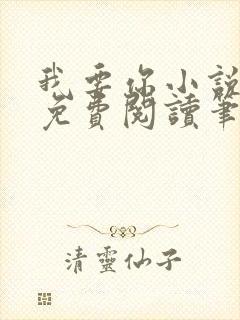 我要你小說
免費閱讀筆
清靈仙子